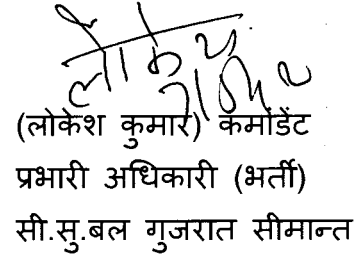 लोकेश कुमार
(लोकेश कुमार) कमांडेंट
प्रभारी अधिकारी (भर्ती)
सी.सु.बल गुजरात सीमान्त